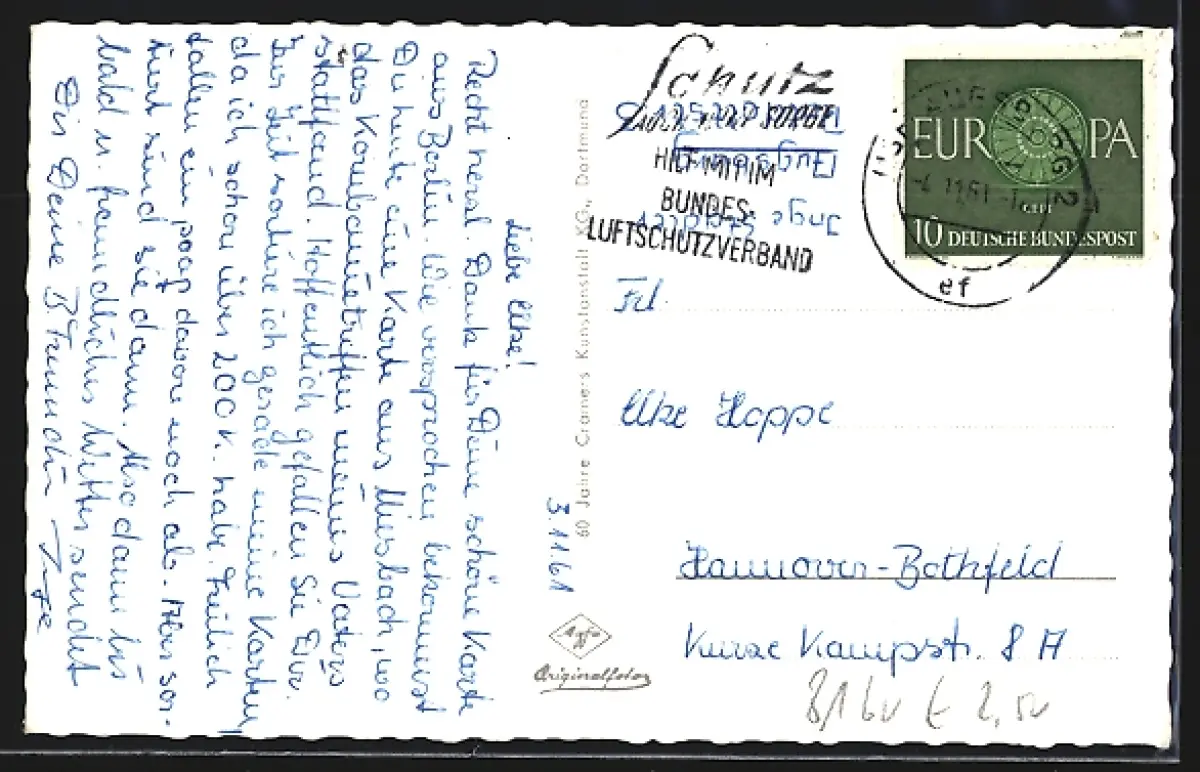 3.11.61
Liebe Elke!
Recht herzl. Dank für Deine schöne Karte
aus Berlin. Wie versprochen bekommst
Du heute eine Karte aus Miesbach, wo
das Kombanietreffen meines Vaters
stattfand. Hoffentlich gefallen Sie Dir.
Zur Zeit sortiere ich gerade meine Karten,
da ich schon über 200 v. habe. Freilich
fallen ein paar davon noch ab. Aber sor-
tiert sind sie dann. Also dann bis
bald u. freundliches Wetter sendet
Dir Deine B.Freundin Inge
60 Jahre Cramers Kunstanstalt KG., Dortmund
Agfa
Originalfoto
Schutz
HILF MIT IM
BUNDES-
LUFTSCHUTZVERBAND
Inge
Augsburg
EUROPA
CEPT
10 DEUTSCHE BUNDESPOST
ef
Frl.
Elke Hoppe
Hannover-Bothfeld
Kurze Kampstr. 8 A